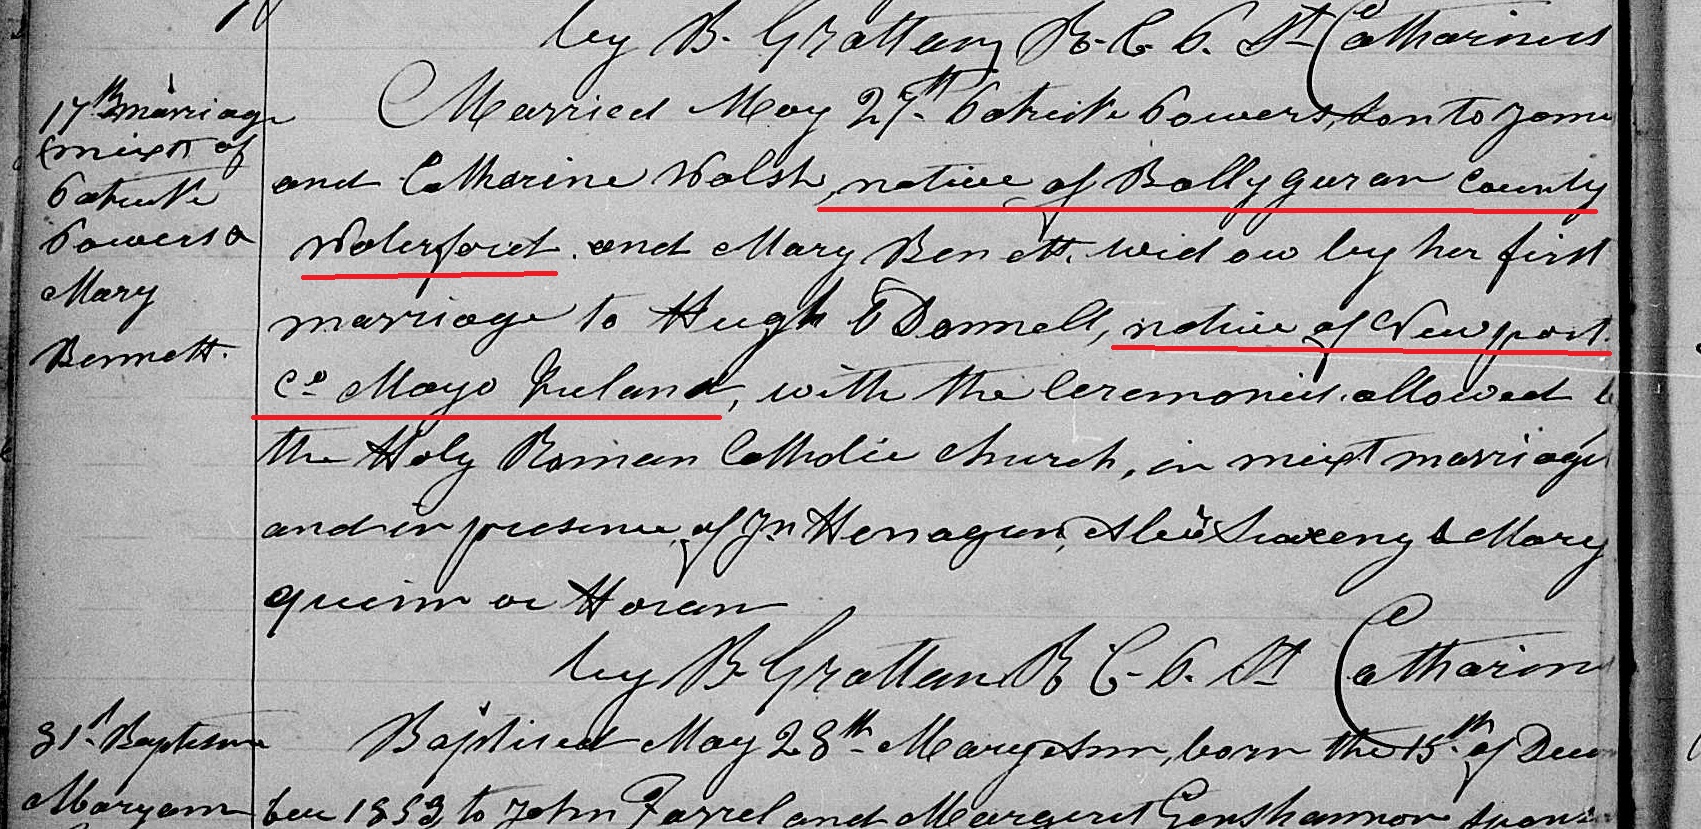 by B. Grattan R. C. P. St Catharines
17th marriage
(mixt) of
Patrick
Powers &
Mary
Bennett.
Married May 27th Patrick Powers, son to Jame
and Catherine Walsh, native of Ballyguran County
Waterford. and Mary Benett. widow by her first
marriage to Hugh O'Donnell, native of Newport.
Co Mayo Ireland, with the Ceremonies allowed b
the Holy Roman Catholic church, in mixt marriage
and in presence of Jn Henagan, & Mary
quinn or Horan
by B. Grattan R. C. P. St Catharin
31st Baptism
Maryann
Baptised May 28th Mary Ann, born the 15th of Decem
ber 1853, to John Farrel and Margeret